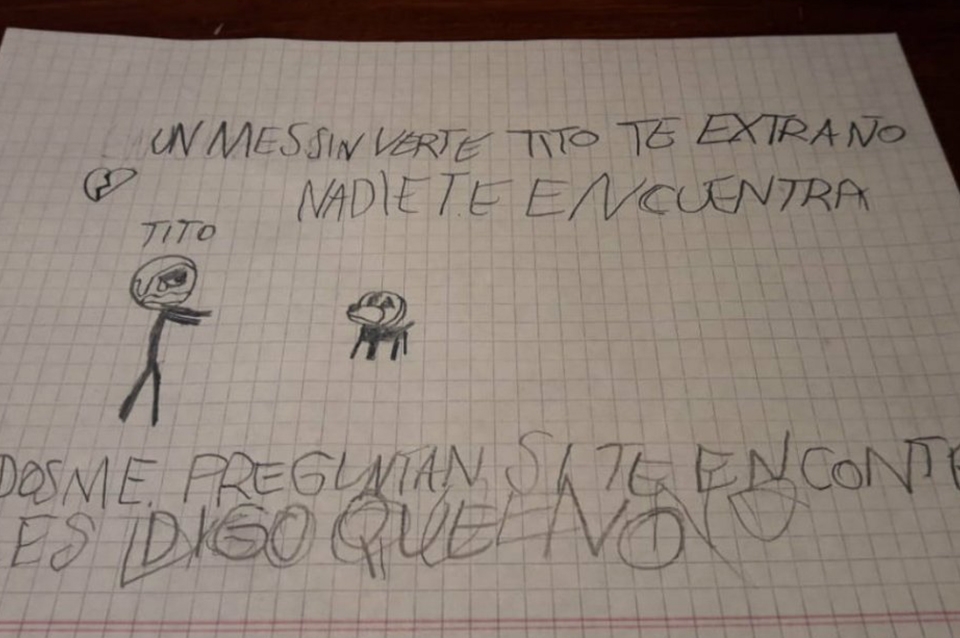 UN MES SIN VERTE TITO TE EXTRAÑO
NADIE TE ENCUENTRA
TITO
DOS ME PREGUNTAN SI TE ENCONTR
ES DIGO QUE NO NO